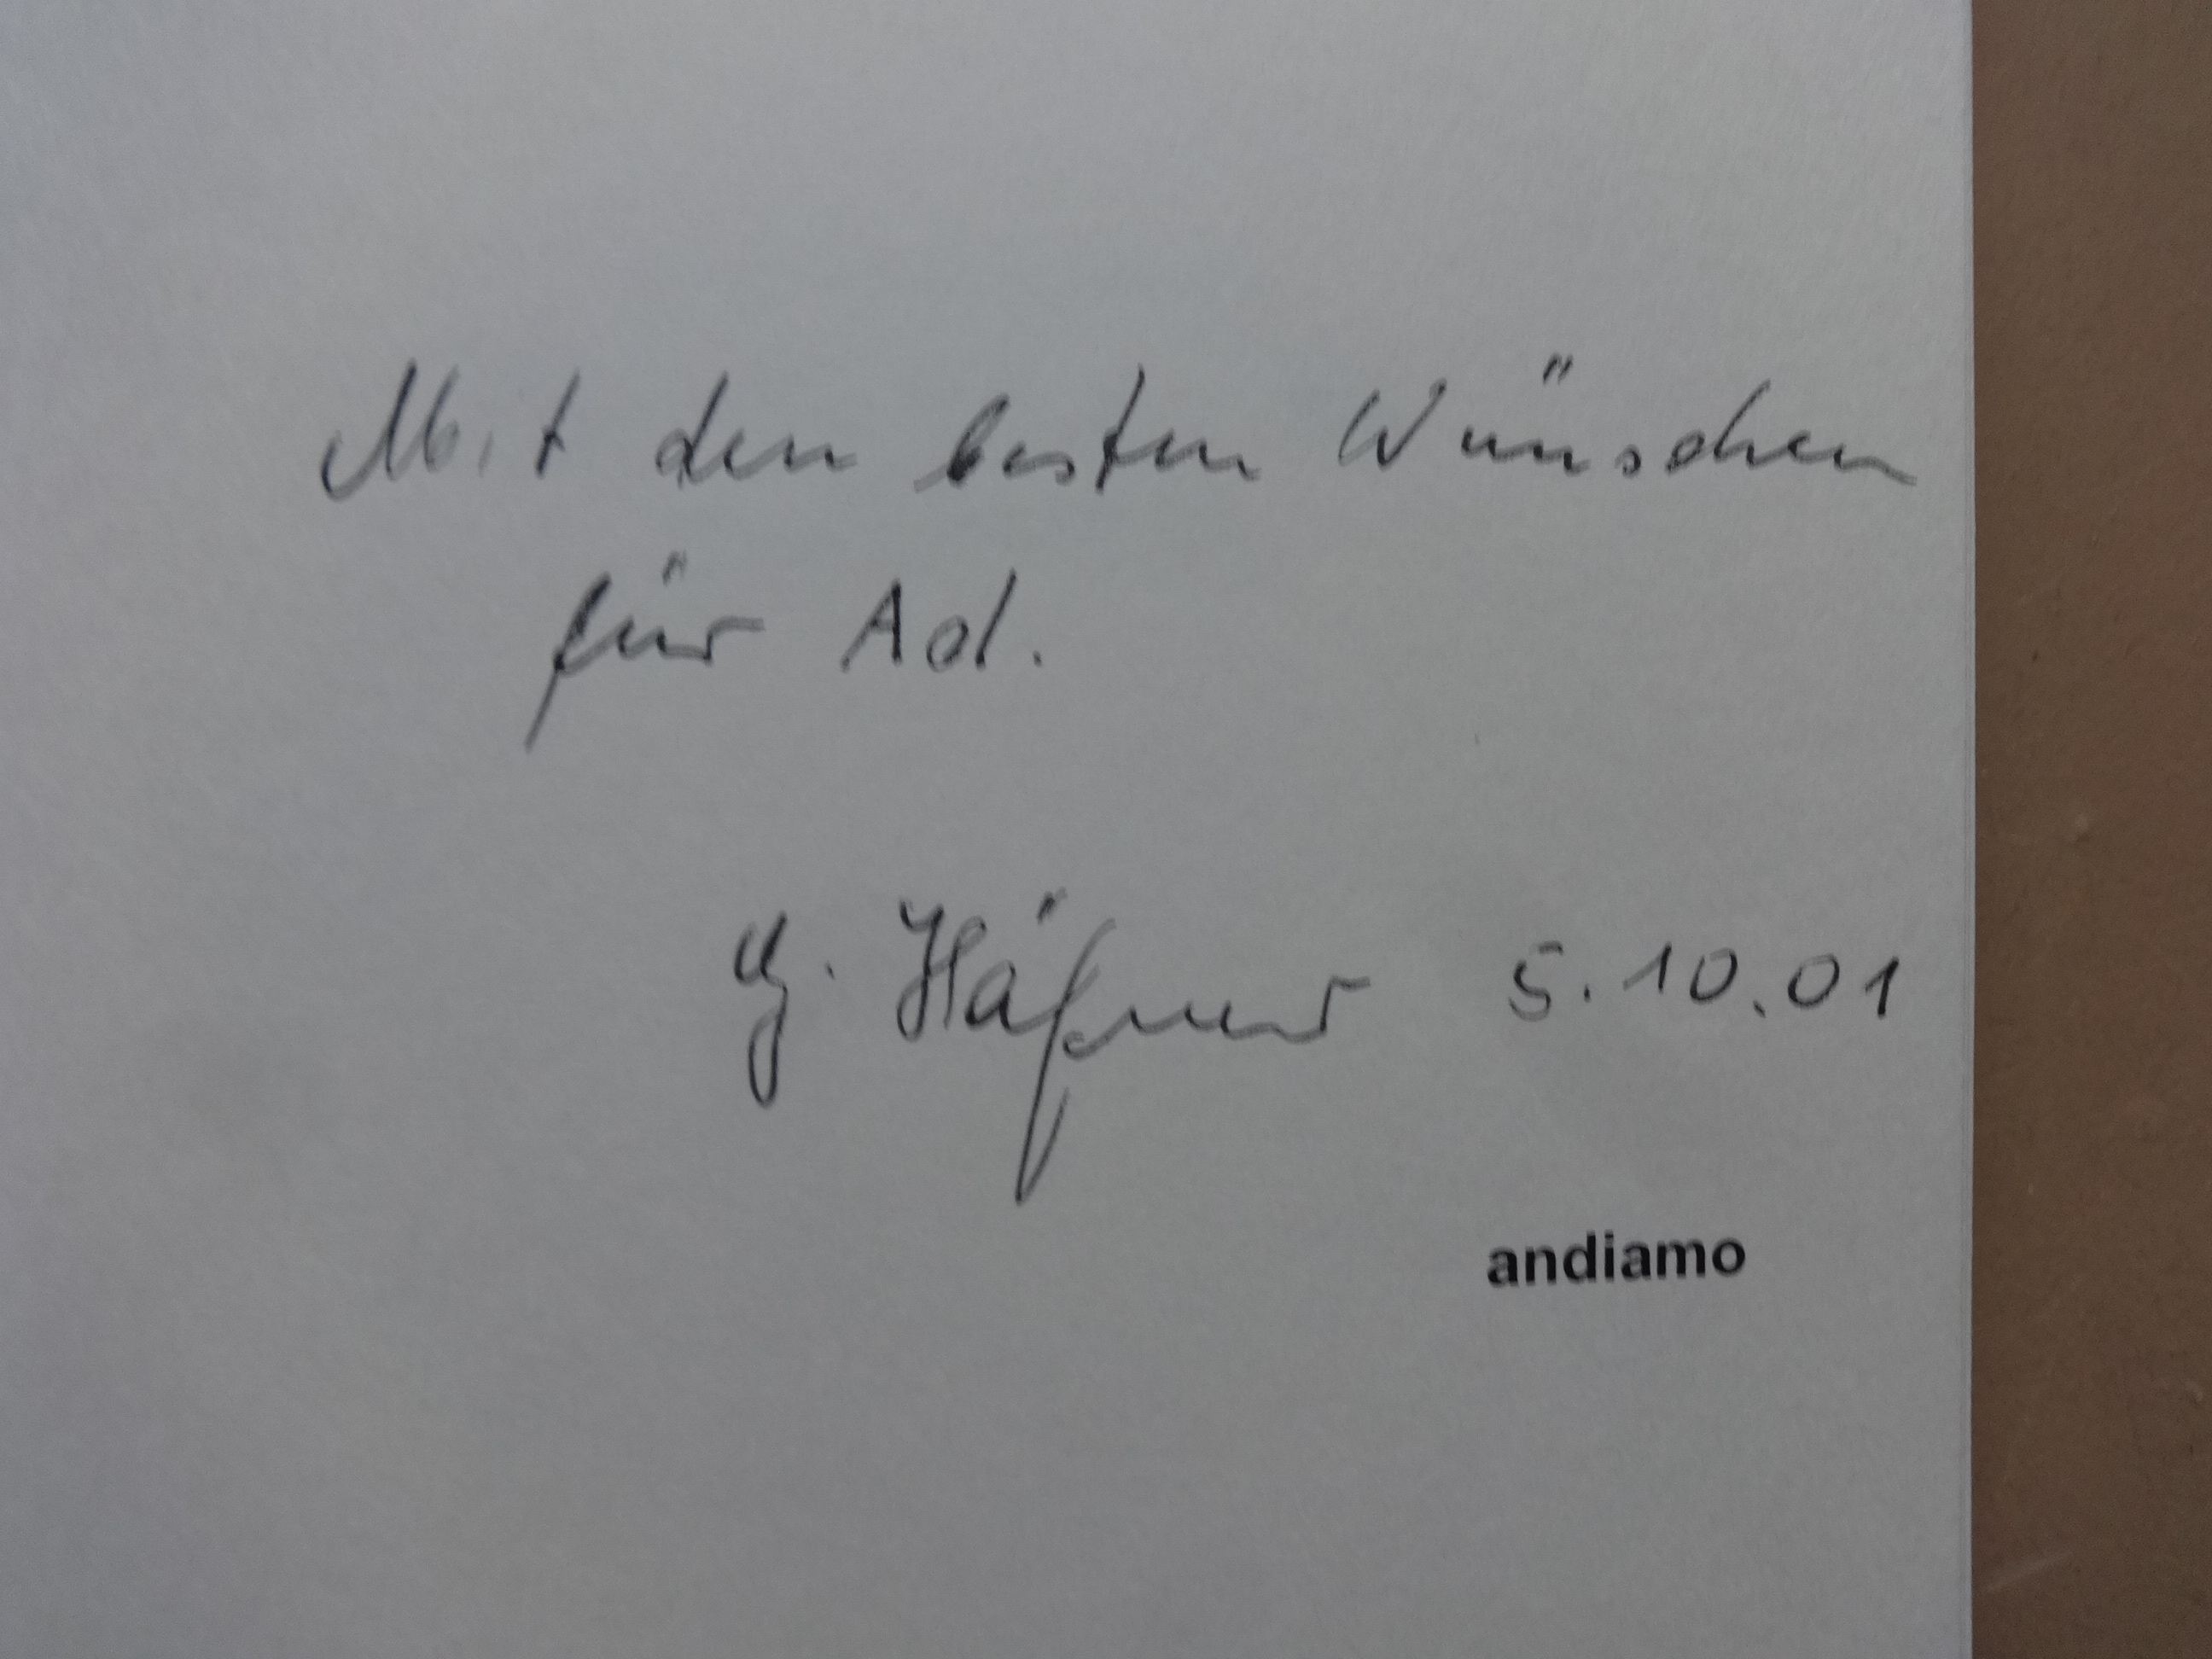 Mit den besten Wünschen
für Ad.
G. Häfner 5.10.01
andiamo